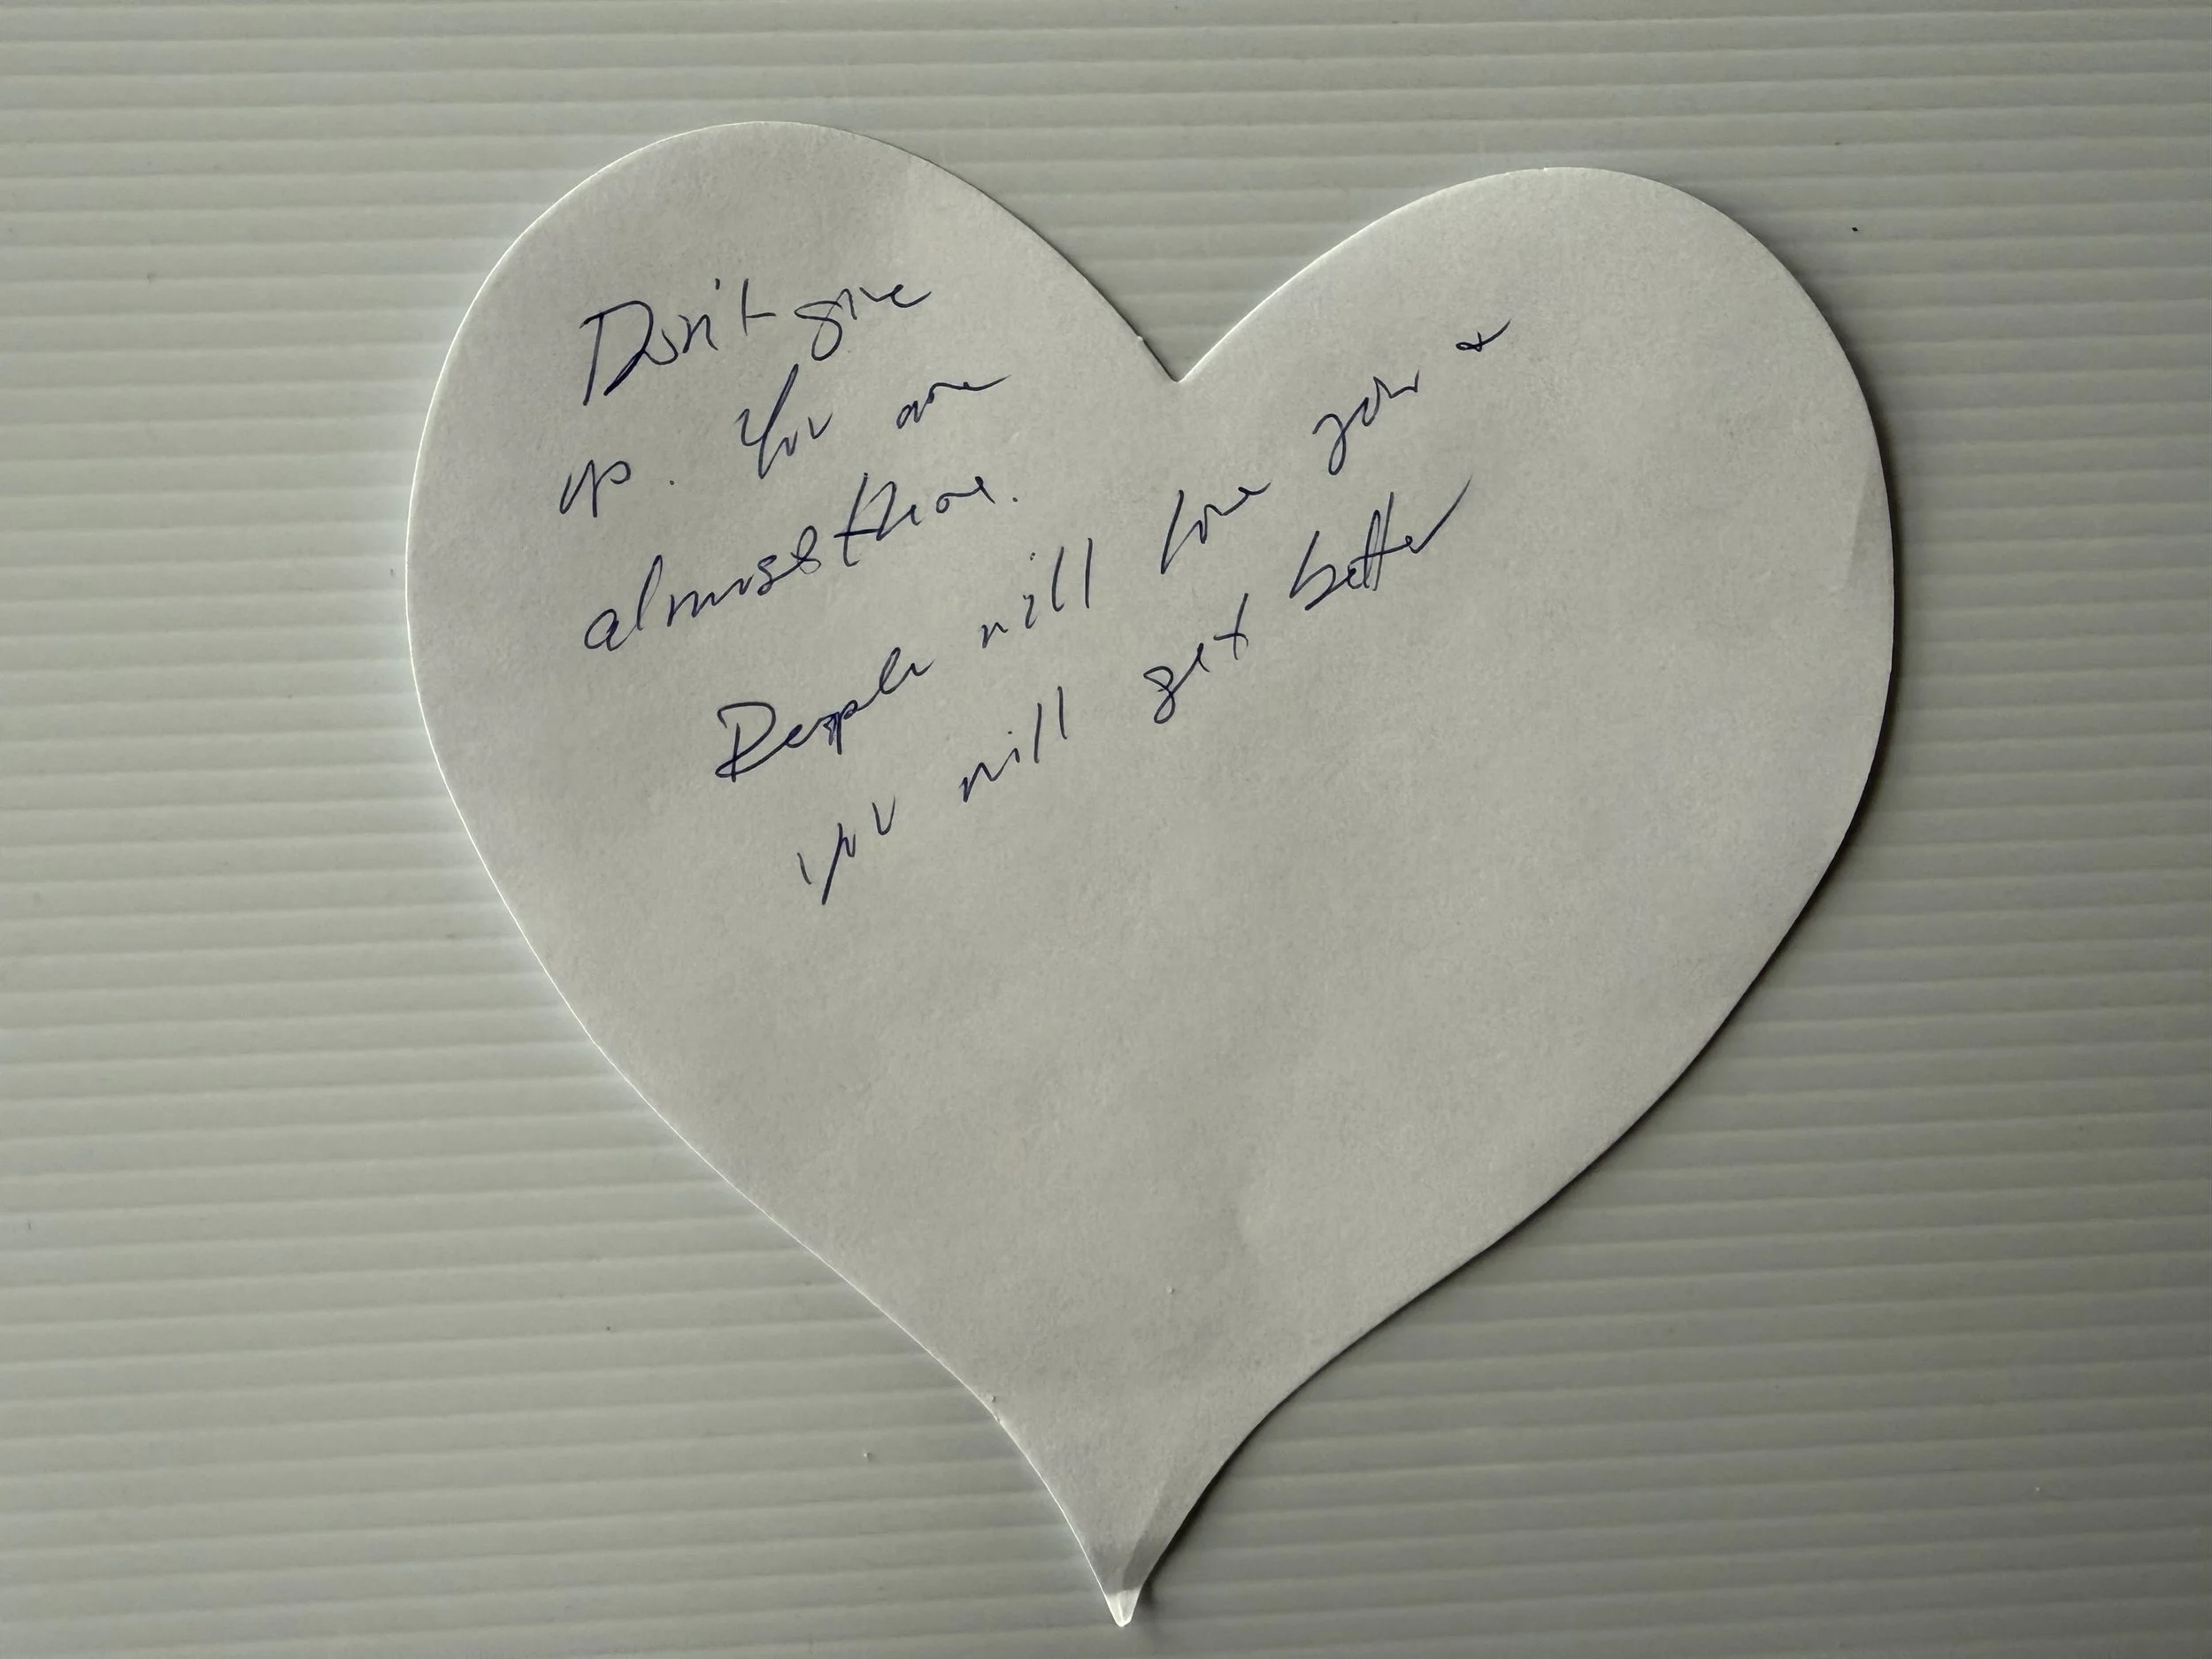 Don't give
up. You are
almost there.
People will love you &
you will get better